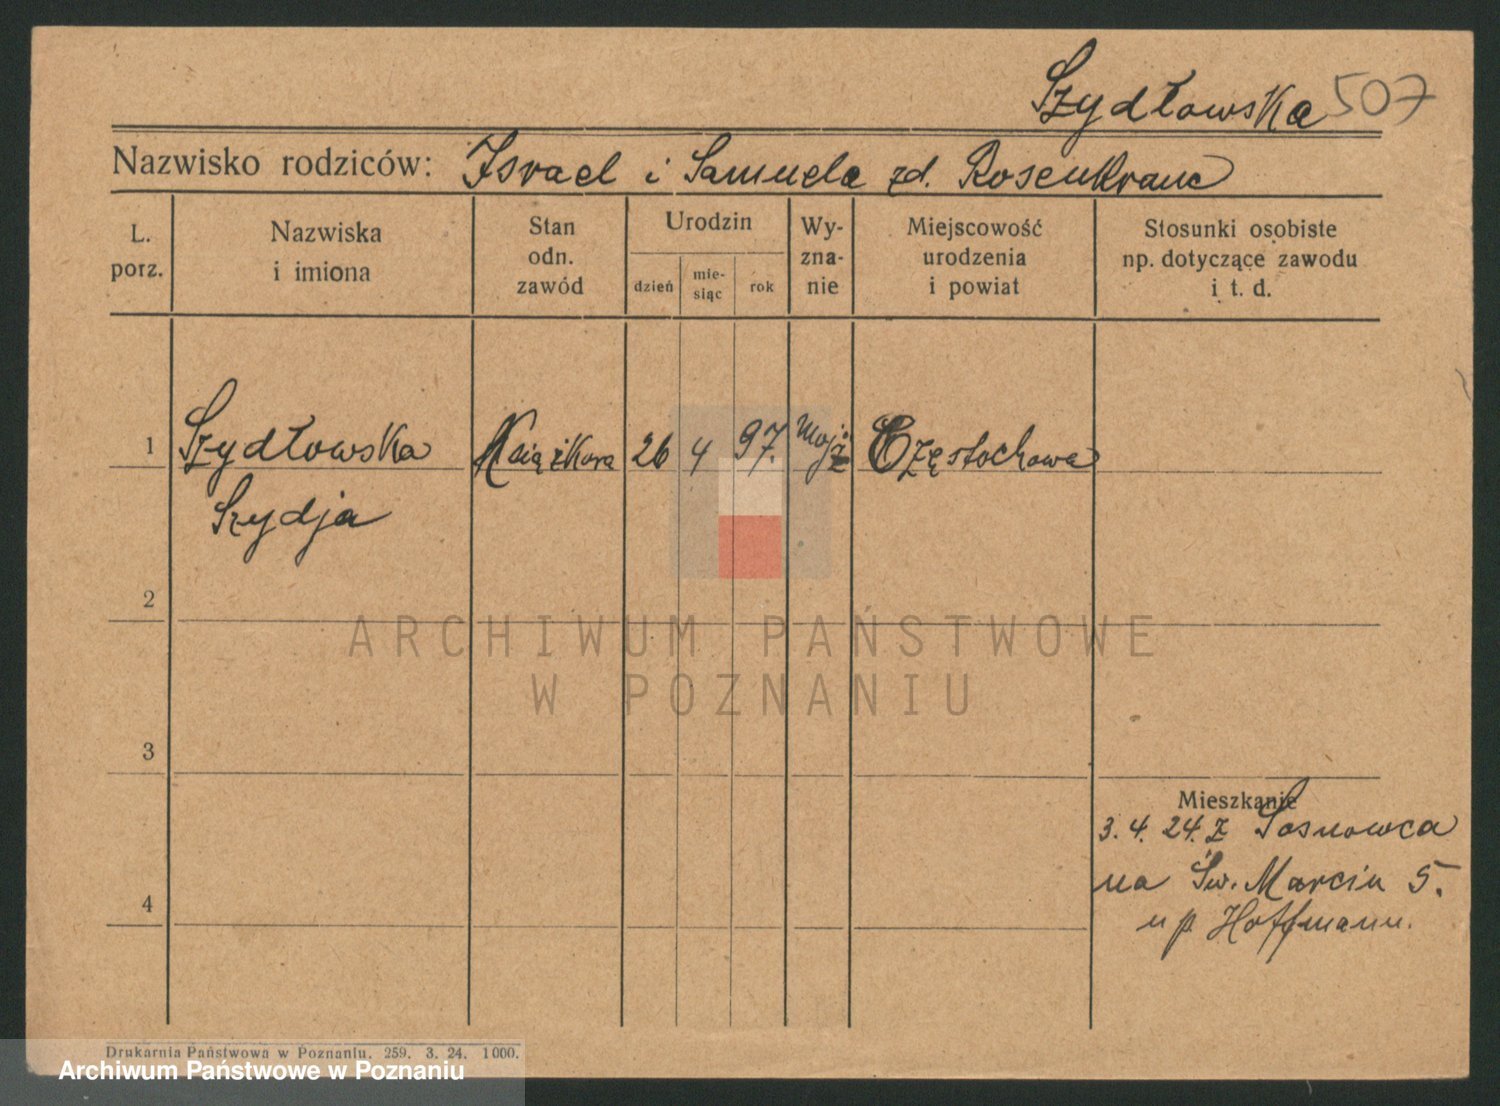 Szydłowska 507
Nazwisko rodziców: Israel i Samuela zd. Rosenkranc
L. porz.
Nazwiska i imiona
Stan odn. zawód
Urodzin
dzień
mie-siąc
rok
Wy-zna-nie
Miejscowość urodzenia i powiat
Stosunki osobiste np. dotyczące zawodu i t. d.
1 Szydłowska Książkowa 26 4 97. mojż Częstochowa
Szydja
2
ARCHIWUM PAŃSTWOWE
W POZNANIU
3
Mieszkanie
3. 4. 24. z Sosnowca
na Św. Marcin 5.
u p. Hoffmann.
4
Drukarnia Państwowa w Poznaniu. 259. 3. 24. 1000.
Archiwum Państwowe w Poznaniu